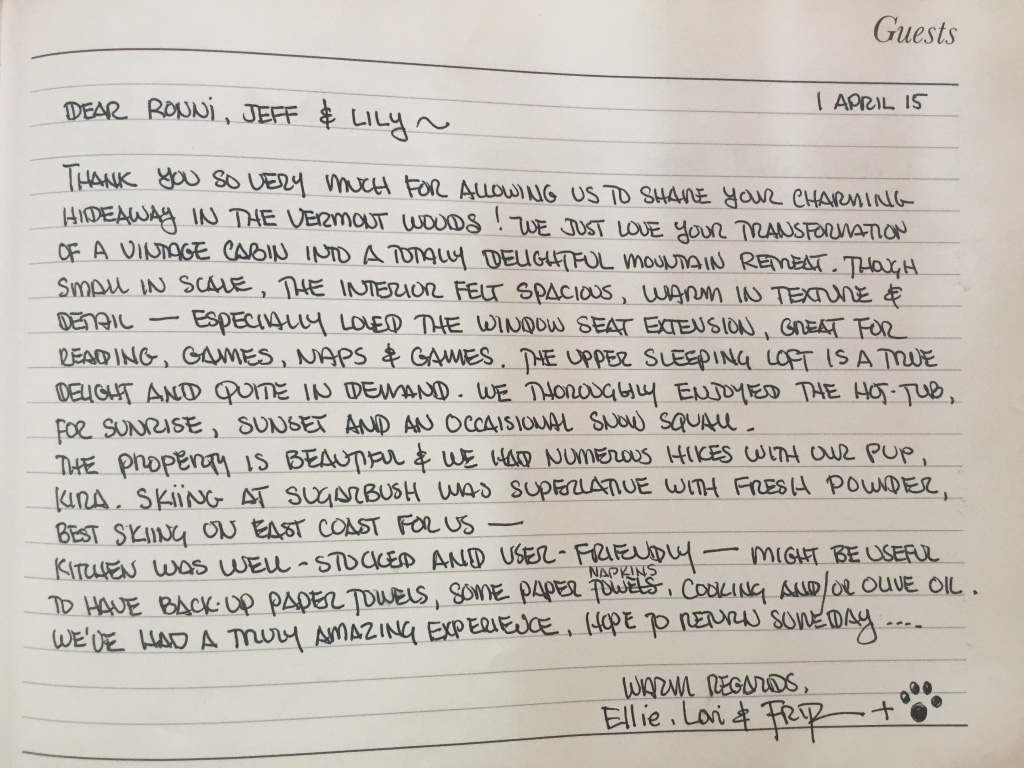 Guests
1 APRIL 15
DEAR RONNi, JEFF & LILY ~
THANK YOU SO VERY MUCH FOR ALLOWING US TO SHARE YOUR CHARMING
HIDEAWAY IN THE VERMONT WOODS! WE JUST LOVE YOUR TRANSFORMATION
OF A VINTAGE CABIN INTO A TOTALLY DELIGHTFUL MOUNTAIN RETREAT. THOUGH
SMALL IN SCALE, THE INTERIOR FELT SPACIOUS, WARM IN TEXTURE &
DETAIL — ESPECIALLY LOVED THE WINDOW SEAT EXTENSION, GREAT FOR
READING, GAMES, NAPS & GAMES. THE UPPER SLEEPING LOFT IS A TRUE
DELIGHT AND QUITE IN DEMAND. WE THOROUGHLY ENJOYED THE HOT-TUB,
FOR SUNRISE, SUNSET AND AN OCCAISIONAL SNOW SQUALL.
THE PROPERTY IS BEAUTIFUL & WE HAD NUMEROUS HIKES WITH OUR PUP,
KIRA. SKIING AT SUGARBUSH WAS SUPERLATIVE WITH FRESH POWDER,
BEST SKIING ON EAST COAST FOR US —
KITCHEN WAS WELL-STOCKED AND USER-FRIENDLY — MIGHT BE USEFUL
NAPKINS
TO HAVE BACK-UP PAPER TOWELS, SOME PAPER TOWELS, COOKING AND/OR OLIVE OIL.
WE'VE HAD A TRULY AMAZING EXPERIENCE, HOPE TO RETURN SOMEDAY ....
WARM REGARDS,
Ellie, Lori & +